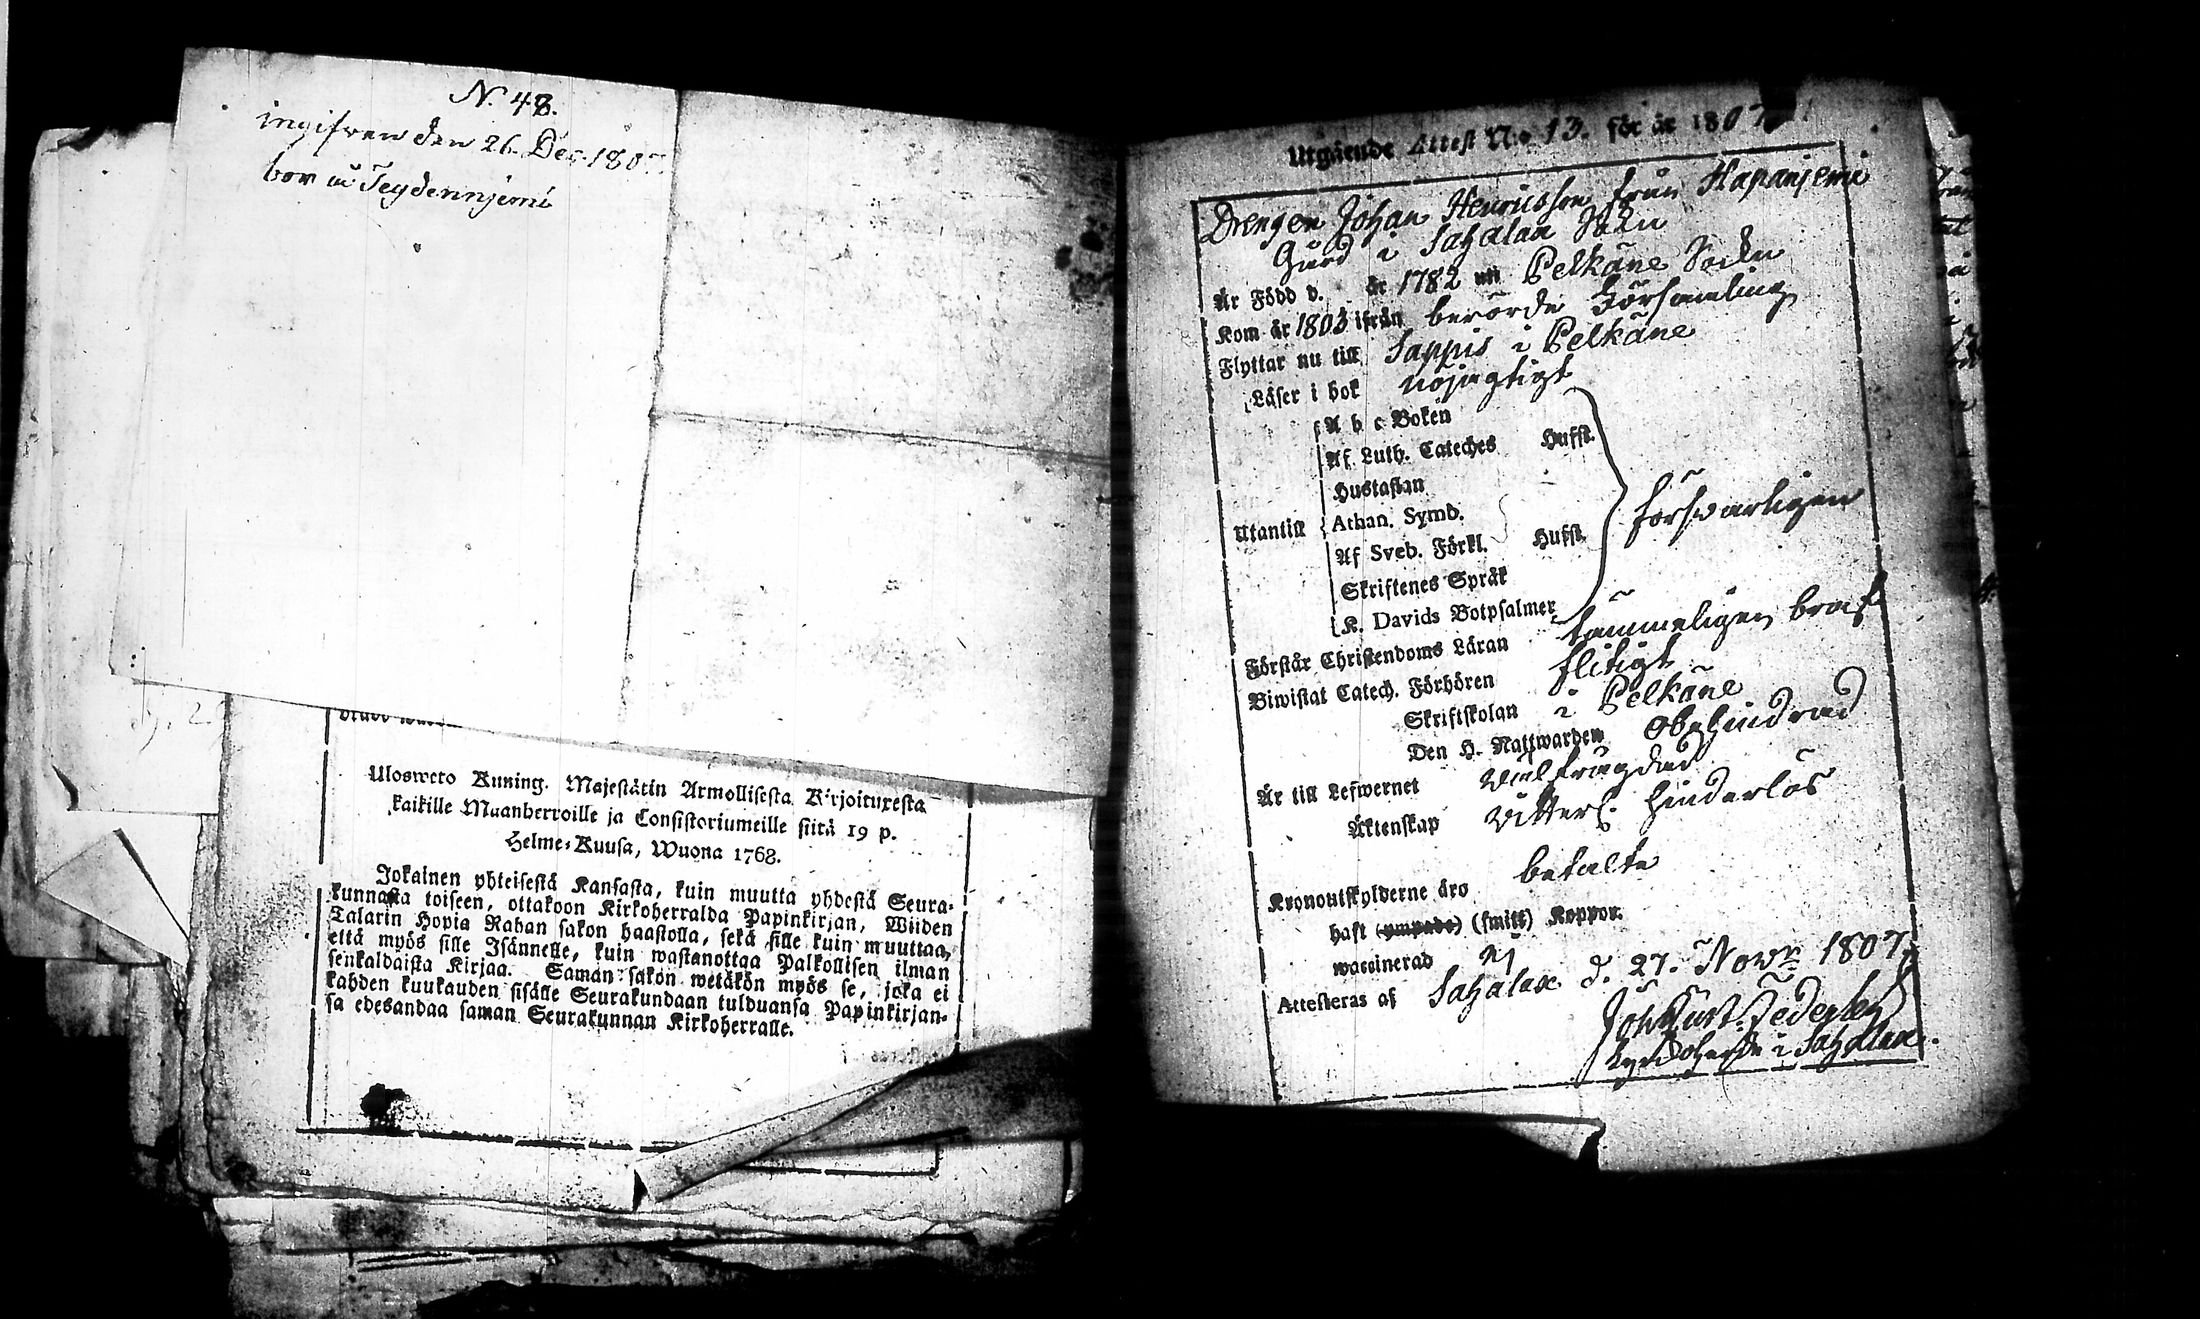 N. 48.
ingifwen den 26. Dec. 1807.
bor i Seydennjemi
Ulosweto Kuning. Majestätin Armollisesta Kirjoituxesta
kaikille Maanherroille ja Consistoriumeille siitä 19 p.
Helme-Kuusa, Wuona 1768.
Jokainen yhteisestä Kansasta, kuin muutta yhdestä Seura-
kunnasta toiseen, ottakoon Kirkoherralda Papinkirjan, Wiiden
Talarin Hopia Rahan sakon haastolla, sekä sille kuin muuttaa,
että myös sille Isännelle, kuin wastanottaa Palkollisen ilman
senkaldaista Kirjaa. Saman sakon wetäkön myös se, joka ei
kahden kuukauden sisälle Seurakundaan tulduansa Papinkirjan-
sa edesandaa saman Seurakunnan Kirkoherralle.
Utgående Attest N:o 13. för år 1807
Drengen Johan Henricsson från Hapanjemi
Gård i Sahalax Sokn
Är Född d. år 1782 uti Pelkäne Sockn
Kom år 1803 ifrån berörde Församling
Flyttar nu till Sappis i Pelkäne
Läser i bok nöjagtigt
A b c Boken
Af Luth. Cateches Hufst.
Hustaflan
Utantill Athan. Symb. försvarligen
Af Sveb. Förkl. Hufst.
Skriftenes Språk
K. Davids Botpsalmer
Förstår Christendoms Läran tämmeligen bra
Biwistat Catech. Förhören flitigt
Skriftskolan i Pelkäne
Den H. Nattwarden obehindrad
Är till Lefwernet wälfrägdad
Äktenskap witterl. hinderlös
Kronoutskylderne äro betalte
haft (ympade) (smitt) Koppor.
waccinerad ej
Attesteras af Sahalax d. 27. Nowr. 1807.
Kyrckoherde i Sahalax.